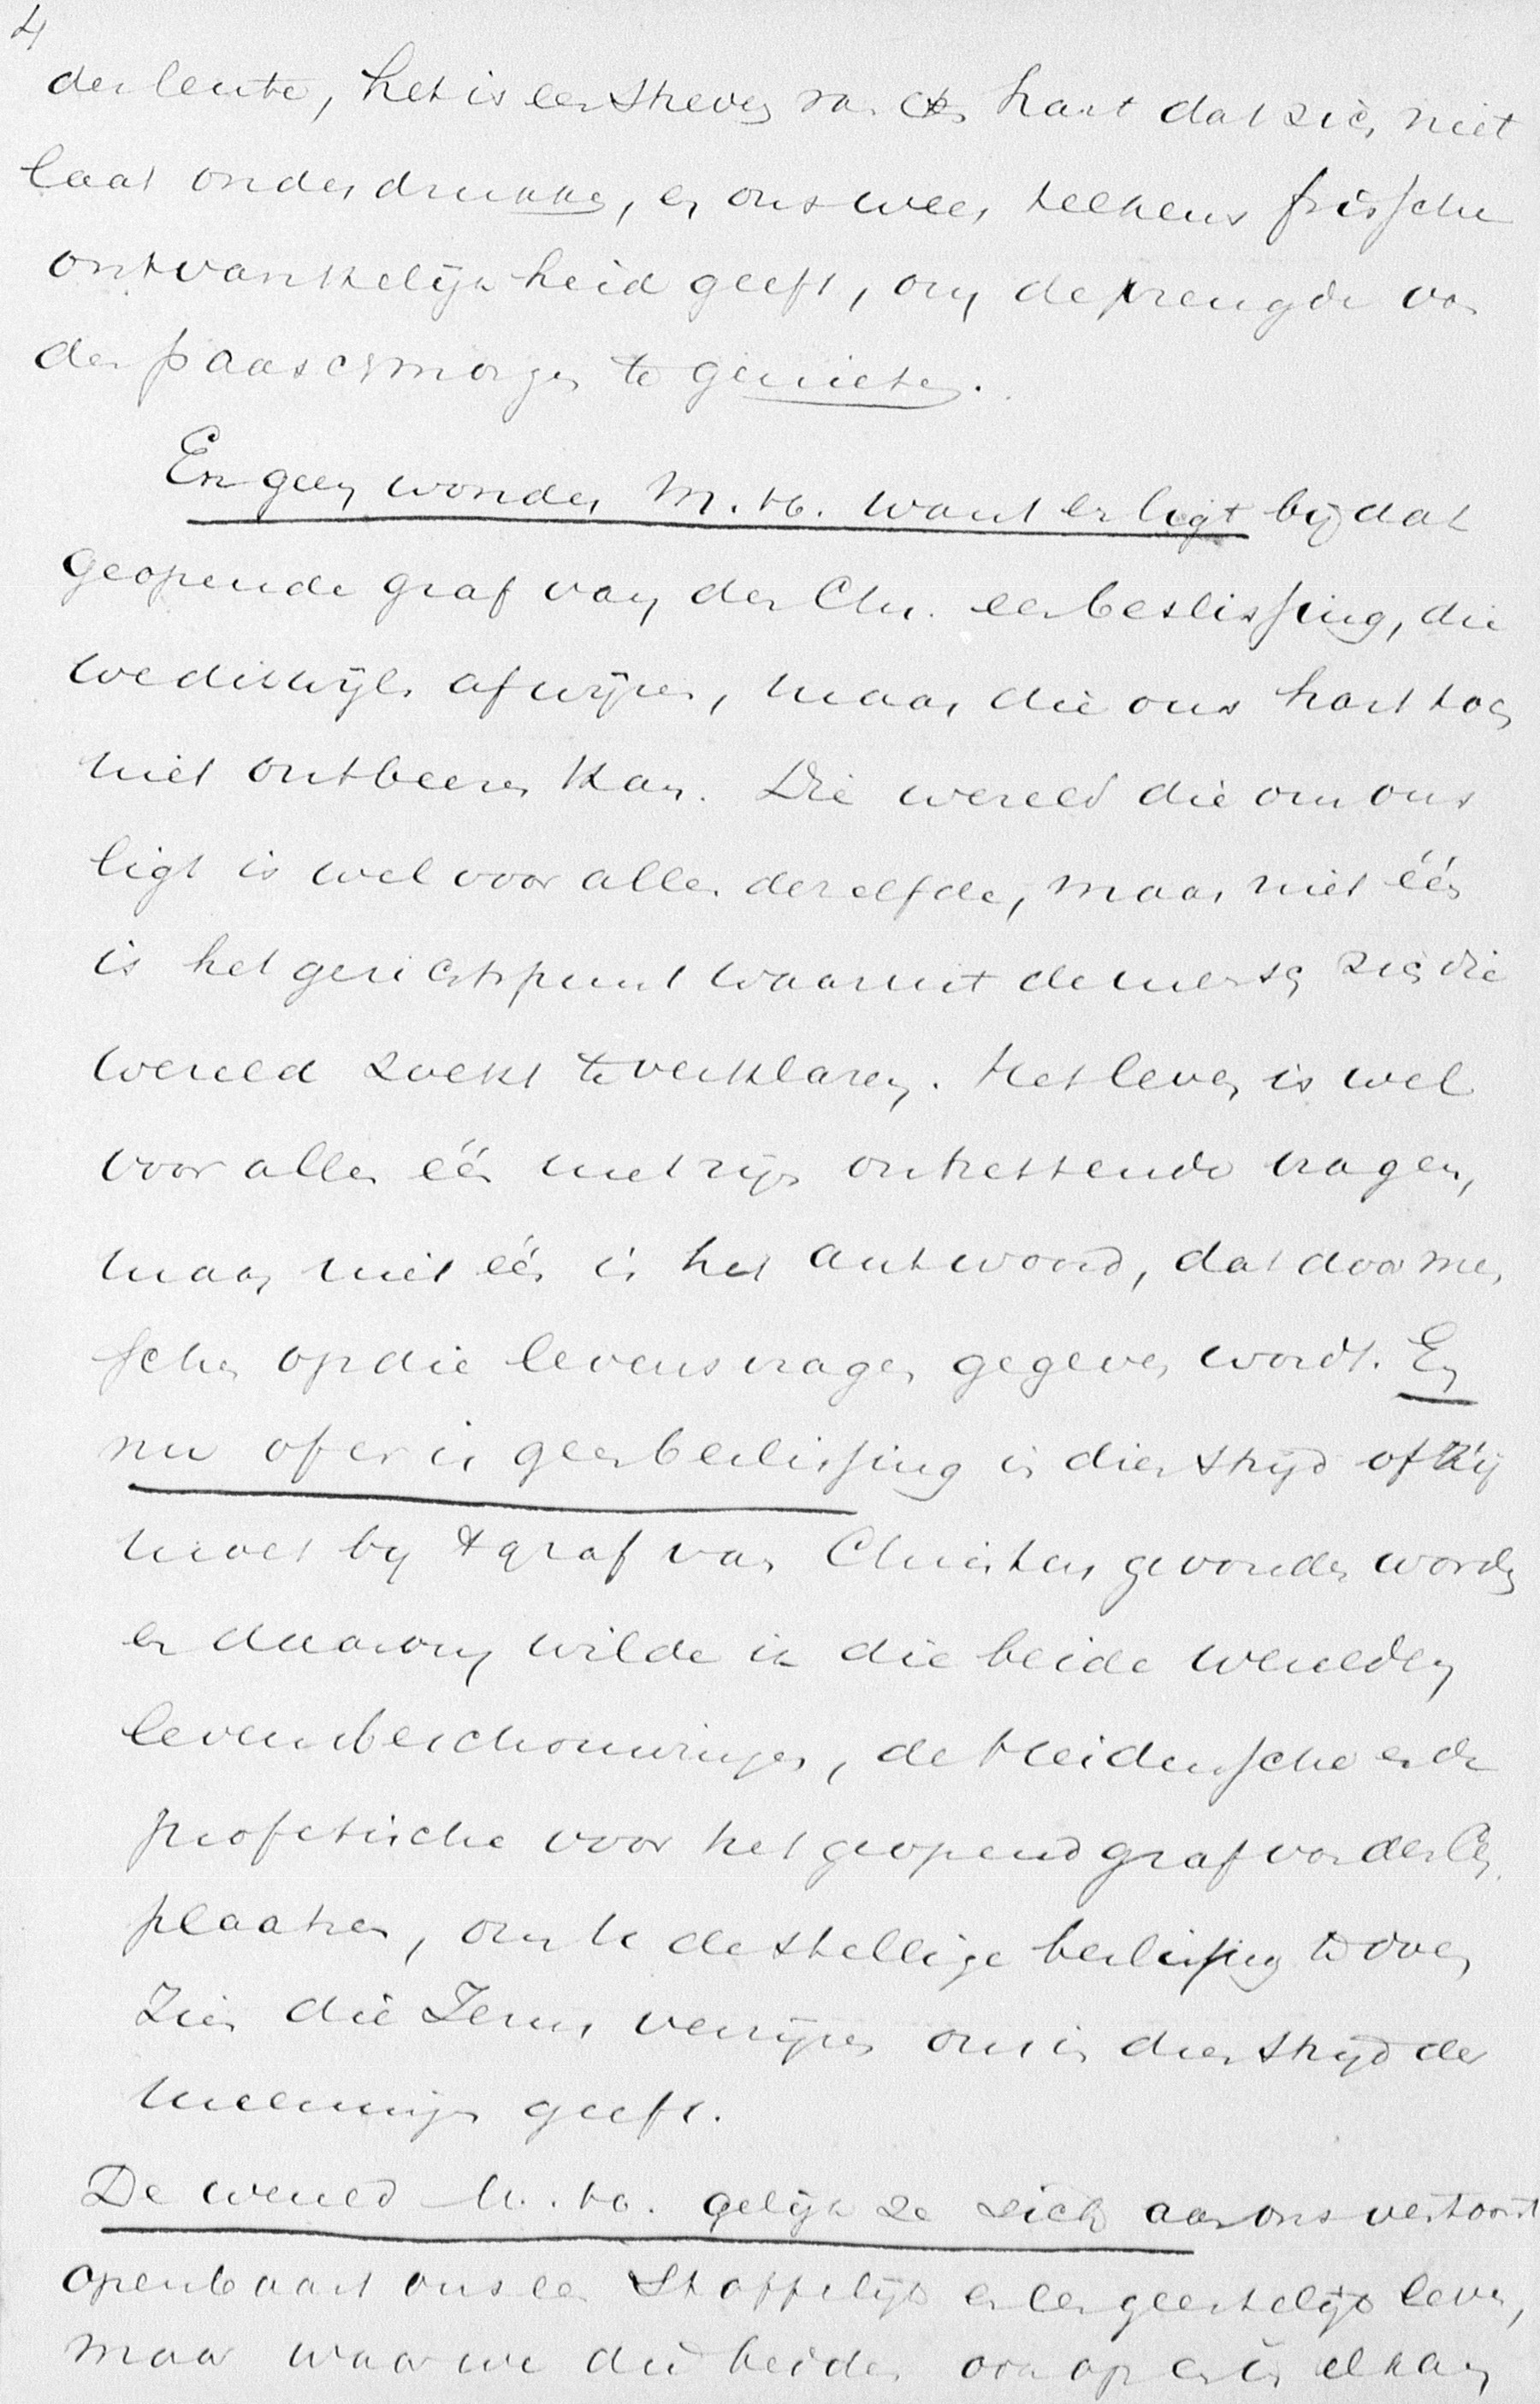 4
der lente, het is een streven van het hart dat zich niet
laat onderdrukken, en ons weer telkens frissche
ontvankelijkheid geeft, om de vreugde van
den paaschmorgen te genieten.
En geen wonder M. H. want er ligt bij dat
geopende graf van den Chr. een beslissing, die
we dikwijls afwijzen, maar die ons hart toch
niet ontbeeren kan. Die wereld die om ons
ligt is wel voor allen dezelfde, maar niet één
is het gezichtspunt waaruit de mensch zich die
wereld zoekt te verklaren. Het leven is wel
voor allen één met zijn ontzettende vragen,
maar niet één is het antwoord, dat door men
schen op die levensvragen gegeven wordt. En
nu of er is geen beslissing in dien strijd of zij
moet bij 't graf van Christus gevonden worden
en daarom wilde ik die beide wereld en
levensbeschouwingen, de Heidensche en de
profetische voor het geopend graf van den Ch.
plaatsen, om u de stellige beslissing te doen
zien die Jezus verrijzen ons in dien strijd der
meeningen geeft.
De wereld M. H. gelijk ze zich aan ons vertoont
openbaart ons een stoffelijk en een geestelijk leven,
maar waar we die beiden ook op en in elkaar